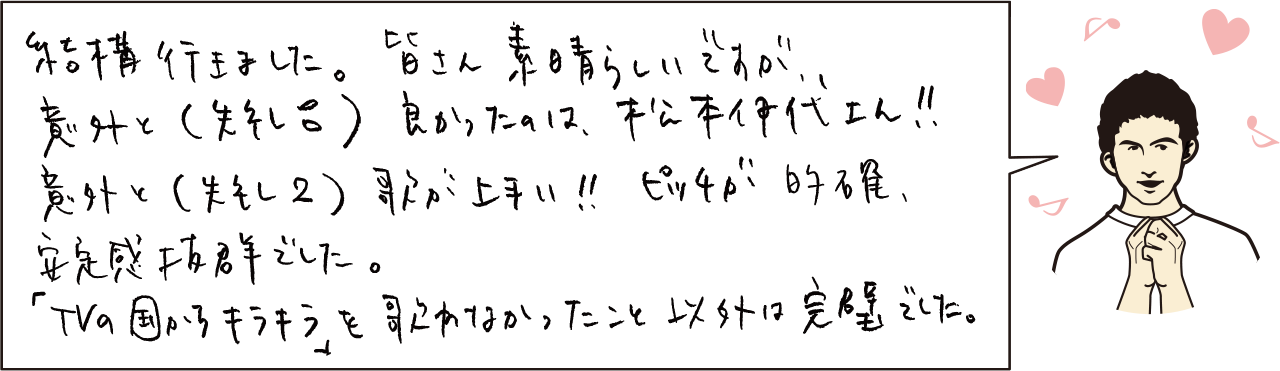 結構行きました。皆さん素晴らしいですが、、
意外と(失礼)良かったのは、松本伊代さん!!
意外と(失礼2)歌が上手い!! ピッチが的確、
安定感抜群でした。
「TVの国からキラキラ」を歌わなかったこと以外は完璧でした。